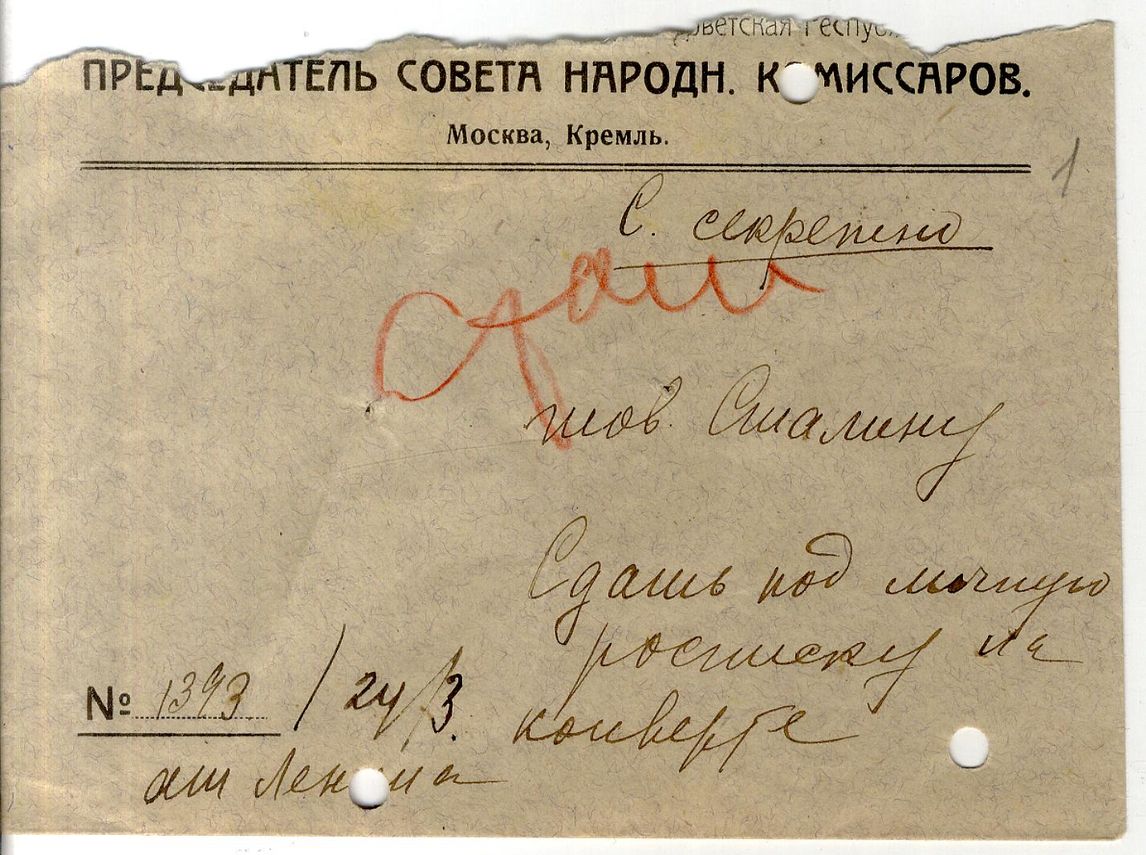 Советская Респуб
ПРЕДСЕДАТЕЛЬ СОВЕТА НАРОДН. КОМИССАРОВ.
Москва, Кремль.
1
С. секретно
тов. Сталину
Сдать под личную
росписку на
конверте
№ 1393 / 24/3.
от Ленина